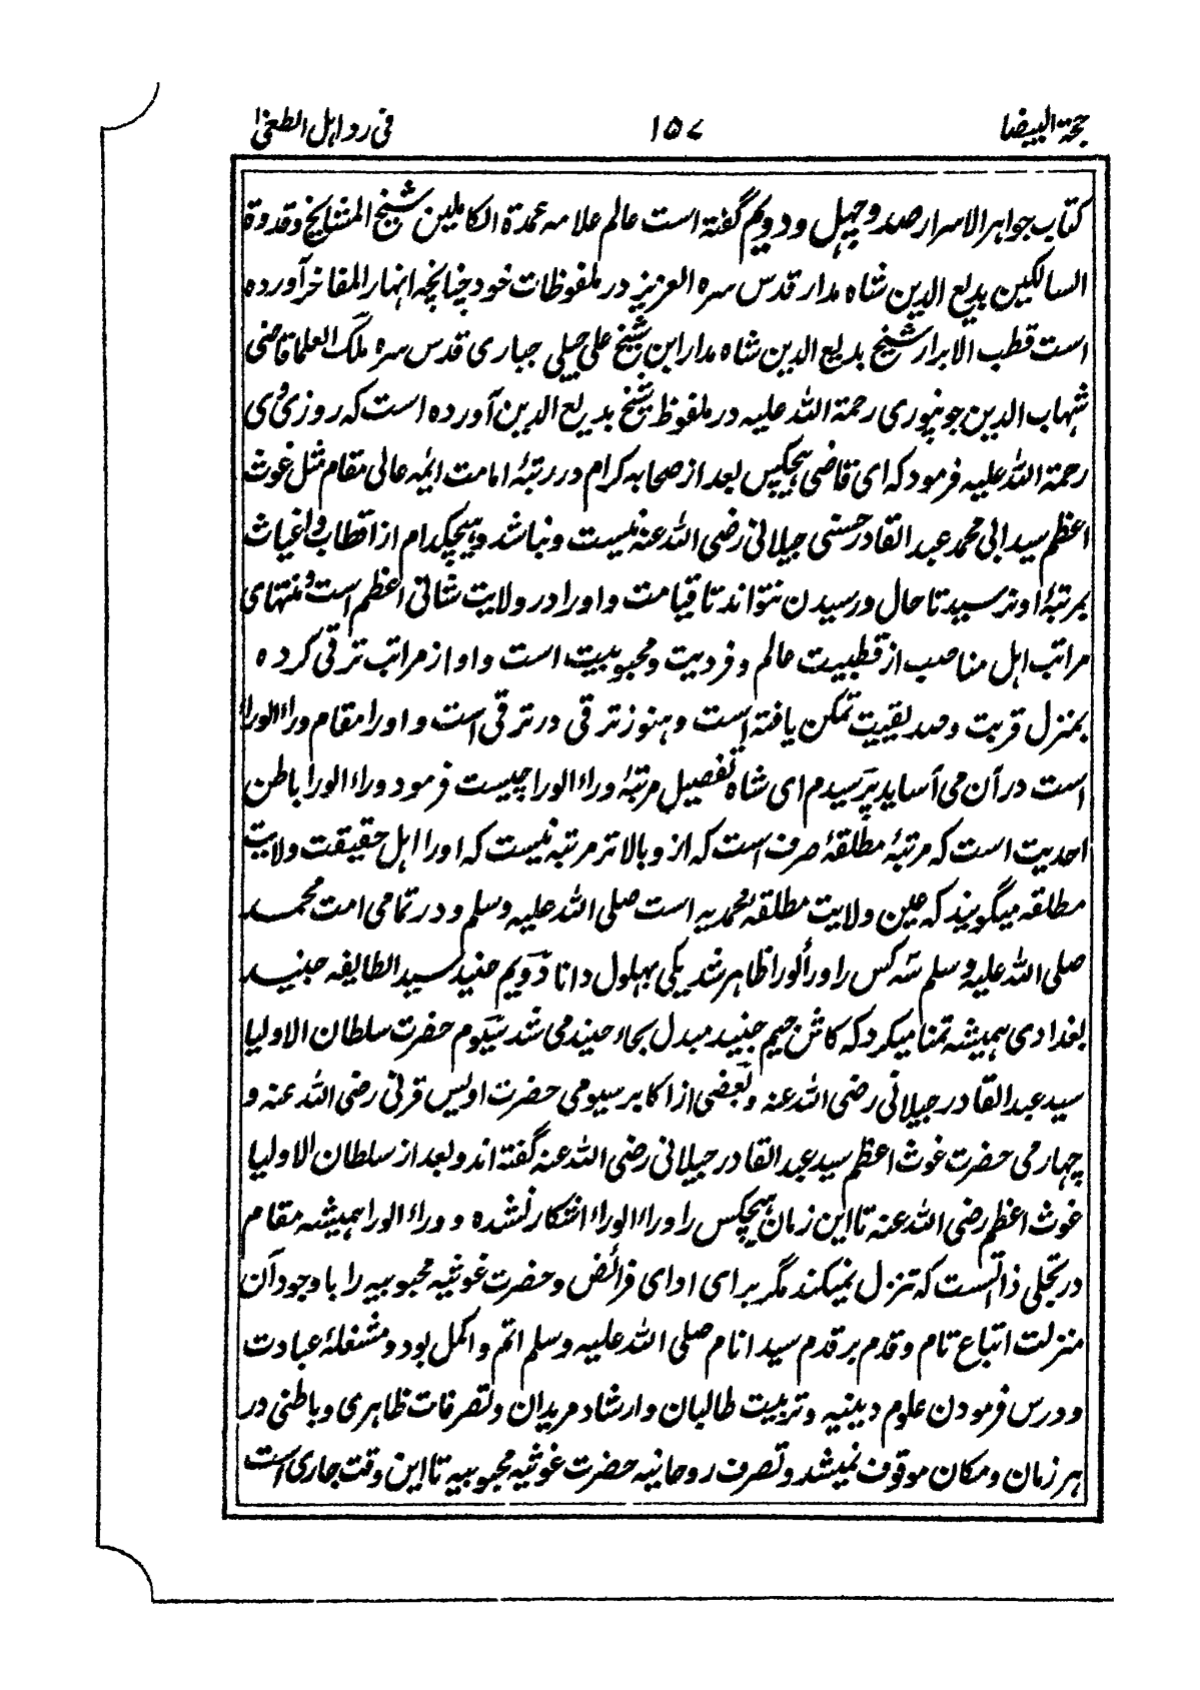 حجة البیضا ۱۵۷ فی رد اهل الطغیٰ
کتاب جواهر الاسرار صد و چهل و دویم گفته است عالم علامه عمدة الکاملین شیخ المشایخ و قدوة
السالکین بدیع الدین شاه مدار قدس سره العزیز در ملفوظات خود چنانچه انهار المفاخر آورده
است قطب الابرار شیخ بدیع الدین شاه مدار ابن شیخ علی جبلی جباری قدس سره ملک العلما قاضی
شهاب الدین جونپوری رحمة الله علیه در ملفوظ شیخ بدیع الدین آورده است که روزی وی
رحمة الله علیه فرمود که ای قاضی هیچکس بعد از صحابه کرام در رتبهٔ امامت ایمه عالی مقام مثل غوث
اعظم سید ابی محمد عبد القادر حسنی جیلانی رضی الله عنه نیست و نباشد و هیچکدام از اقطاب و اغیاث
بمرتبهٔ او نرسید تا حال و رسیدن نتواند تا قیامت و او را در ولایت شانی اعظم است و منتهای
مراتب اهل مناصب از قطبیت عالم و فردیت و محبوبیت است و او از مراتب ترقی کرده
بمنزل قربت و صدیقیت تمکن یافته است و هنوز ترقی در ترقی است و او را مقام وراء الوراء
است در آن می آساید پرسیدم ای شاه تفصیل مرتبهٔ وراء الورا چیست فرمود وراء الورا باطن
احدیت است که مرتبهٔ مطلقهٔ صرف است که از و بالاتر مرتبه نیست که او را اهل حقیقت ولایت
مطلقه میگویند که عین ولایت مطلقه محمدیه است صلی الله علیه وسلم و در تمامی امت محمد
صلی الله علیه وسلم سه کس را وراء الورا ظاهر شد یکی بهلول دانا دویم جنید سید الطایفه جنید
بغدادی همیشه تمنا میکرد که کاش جیم جنید مبدل بحاء حنید می شد سیوم حضرت سلطان الاولیا
سید عبد القادر جیلانی رضی الله عنه و بعضی از اکابر سیومی حضرت اویس قرنی رضی الله عنه و
چهارمی حضرت غوث اعظم سید عبد القادر جیلانی رضی الله عنه گفته اند و بعد از سلطان الاولیا
غوث اعظم رضی الله عنه تا این زمان هیچکس را وراء الوراء اشکار نشده و وراء الورا همیشه مقام
در تجلی ذاتست که تنزل نمیکند مگر برای ادای فرائض و حضرت غوثیه محبوبیه را با وجود آن
منزلت اتباع تام و قدم بر قدم سید انام صلی الله علیه وسلم اتم و اکمل بود و مشغلهٔ عبادت
و درس فرمودن علوم دینیه و تربیت طالبان و ارشاد مریدان و تصرفات ظاهری و باطنی در
هر زمان و مکان موقوف نمیشد و تصرف روحانیه حضرت غوثیه محبوبیه تا این وقت جاری است